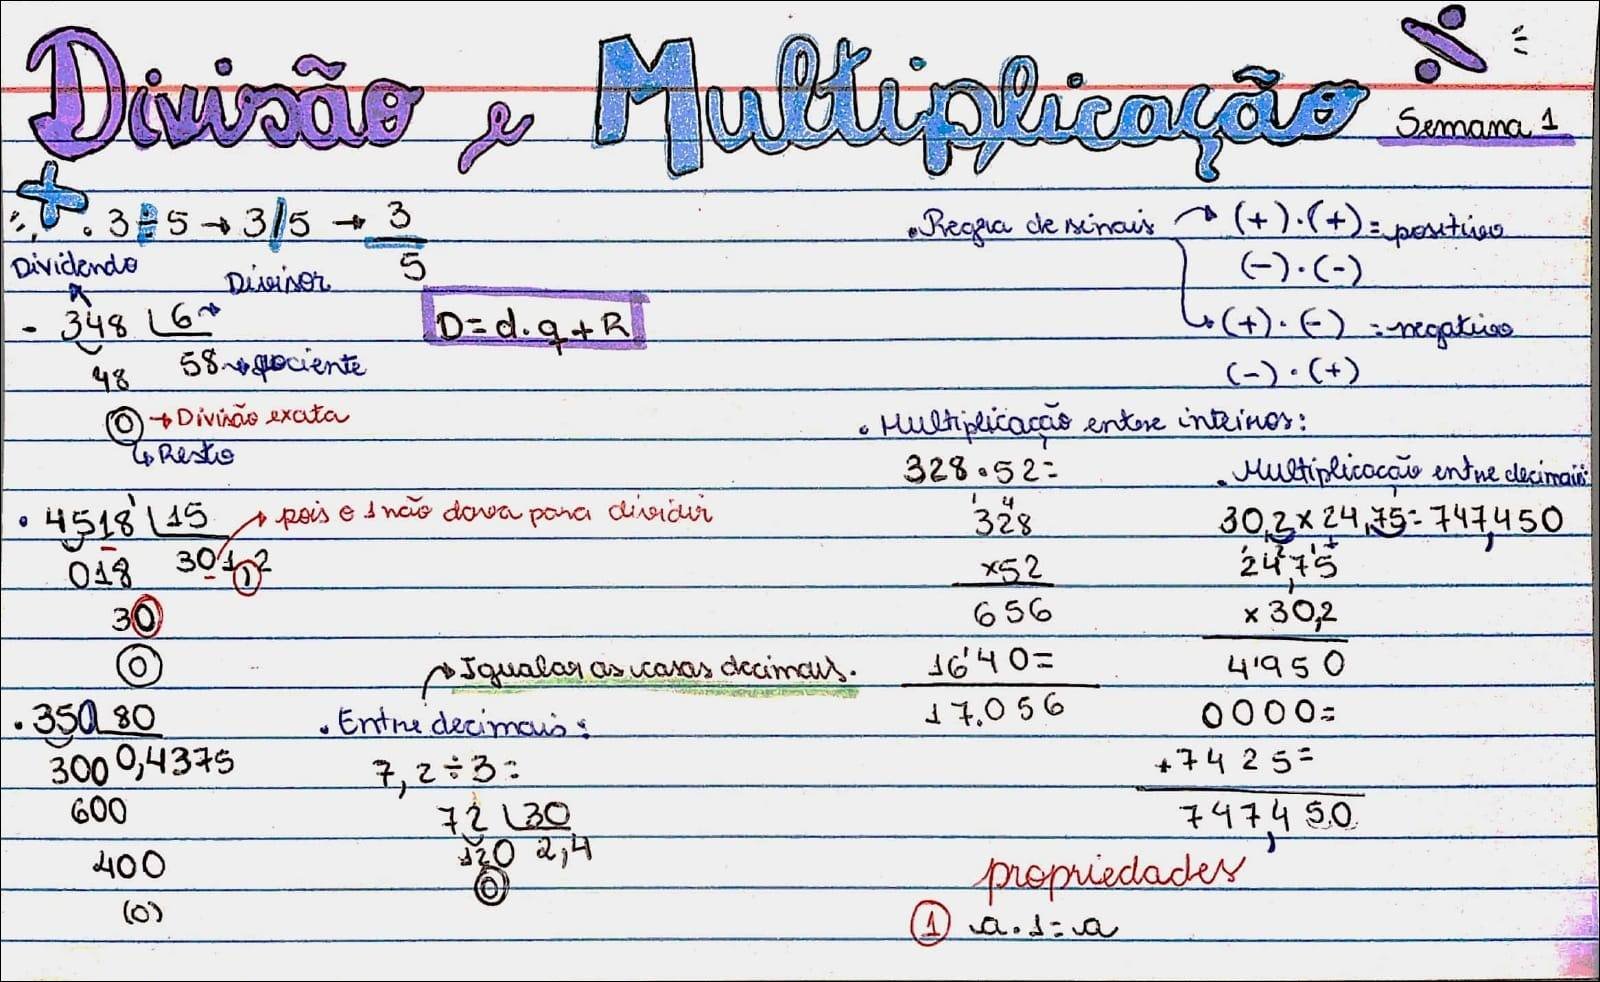 Divisão e Multiplicação
Semana 1
. 3 ÷ 5 → 3/5 → 3
5
Dividendo
Divisor
- 348 6
58 → quociente
48
0 → Divisão exata
↳ Resto
D = d . q + R
. 4518 15
→ pois o 1 não dava para dividir
018 301,2
30
0
. 350 80
300 0,4375
600
400
(0)
→ Igualar as casas decimais.
. Entre decimais:
7,2 ÷ 3 =
72 30
120 2,4
0
. Regra de sinais → (+) . (+) = positivo
(-) . (-)
↳ (+) . (-) = negativo
(-) . (+)
. Multiplicação entre inteiros:
328 . 52 =
1 4
328
x52
656
16'40=
17.056
. Multiplicação entre decimais:
30,2 x 24,75 = 747,450
24,75
x 30,2
4'950
0000=
+7425=
747,450
propriedades
1 a . 1 = a